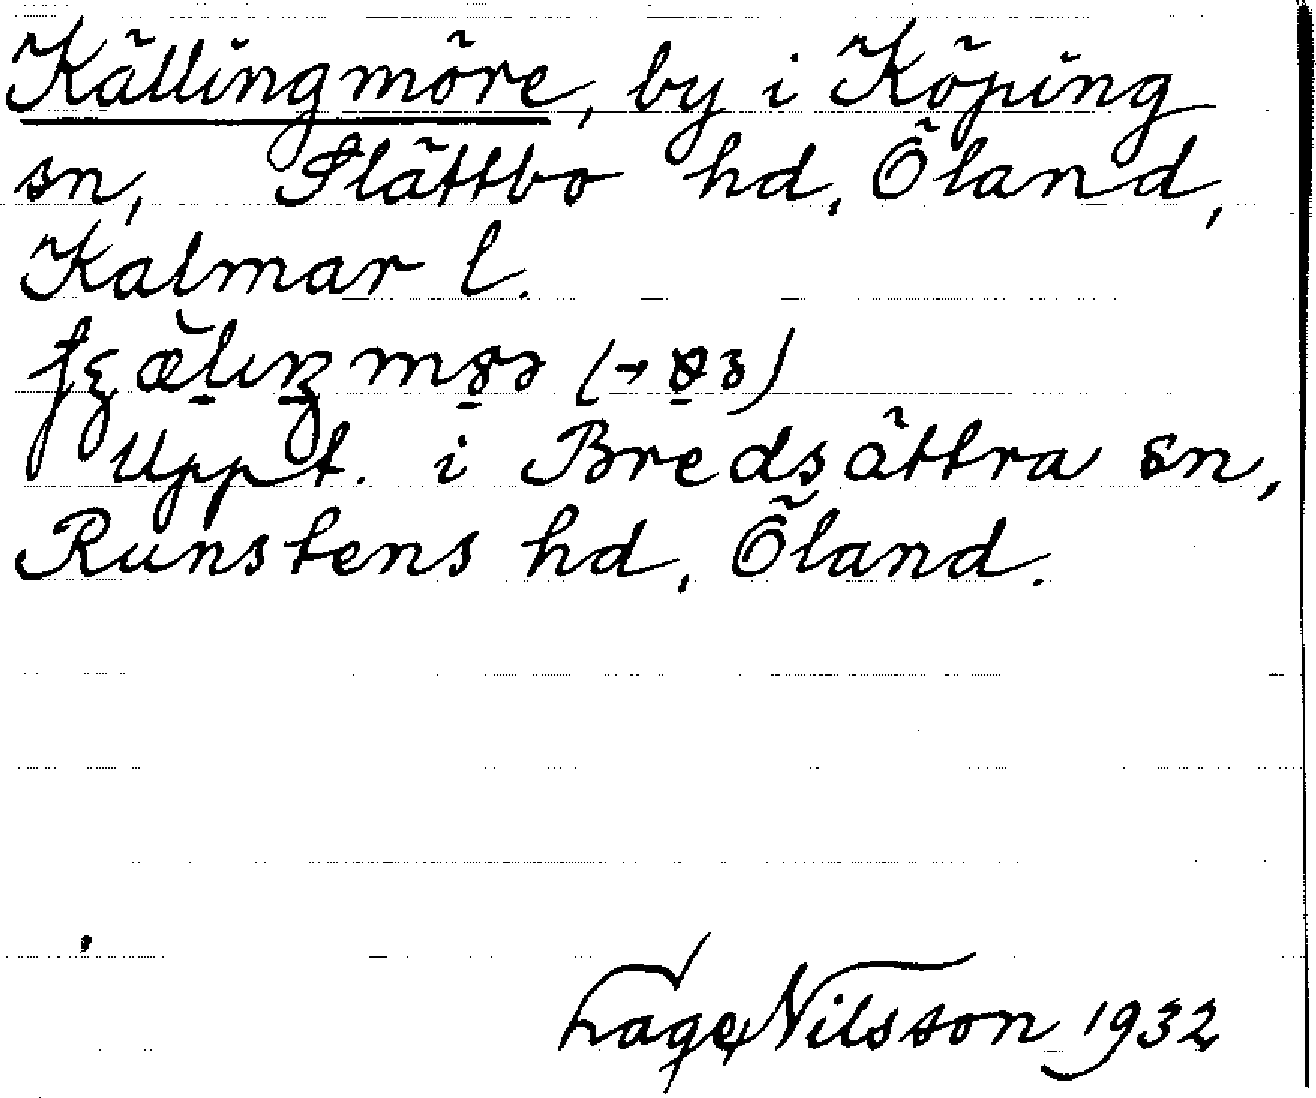 Källingmöre, by i Köping
sn, Slättbo hd, Öland,
Kalmar l.
Uppt. i Bredsättra sn,
Runstens hd, Öland.
Tage Nilsson 1932